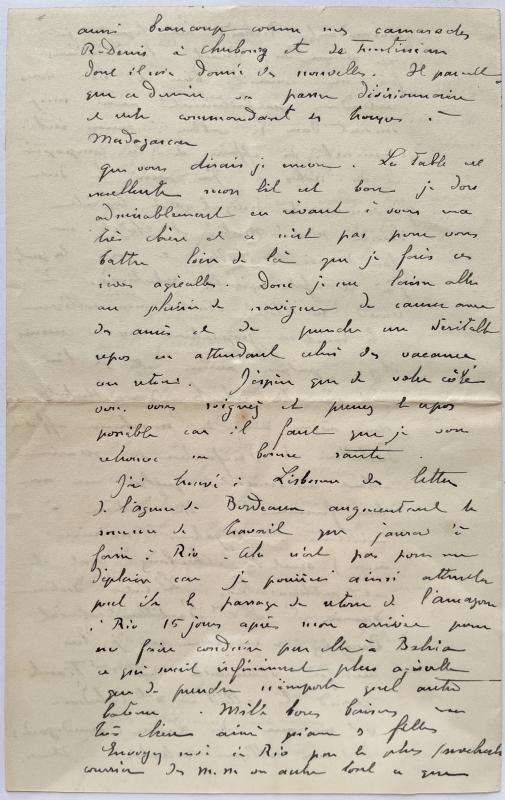 aussi beaucoup comme nos camarades
R. Denis à Cherbourg et de
dont il m'a donné des nouvelles. Il parait
que ce dernier va passer divisionnaire
et être commandant des troupes à
Madagascar
que vous dirais je encore. La table est
excellente mon lit est bon je dors
admirablement en rêvant à vous ma
très chère et ce n'est pas pour vous
battre loin de là que je fais ces
rêves agréables. Donc je me laisse aller
au plaisir de naviguer de causer avec
des amis et de prendre un véritable
repos en attendant celui des vacances
au retour. J'espère que de votre côté
vous vous soignez et prenez le repos
possible car il faut que je vous
retrouve en bonne santé.
J'ai trouvé à Lisbonne des lettres
de l'agence de Bordeaux augmentant la
somme de travail que j'aurai à
faire à Rio. Cela n'est pas pour me
déplaire car je pourrai ainsi attendre
peut être le passage de retour de l'amazone
à Rio 15 jours après mon arrivée pour
me faire conduire par elle à Bahia
ce qui serait infiniment plus agréable
que de prendre n'importe quel autre
bateau. Mille bons baisers ma
très chère amie à mes 3 filles
Envoyez moi à Rio par le plus prochain
courrier des m.m ou autre tout ce que